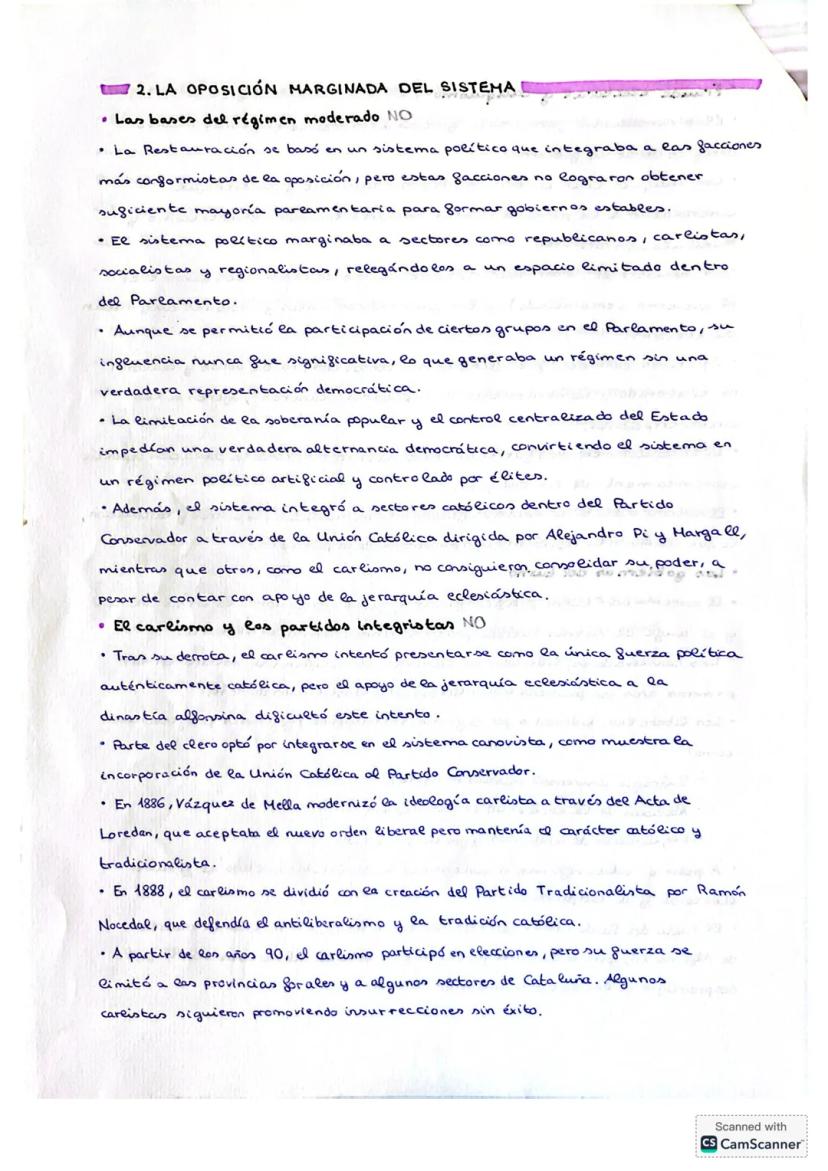 2. LA OPOSICIÓN MARGINADA DEL SISTEMA
• Las bases del régimen moderado NO
• La Restauración se basó en un sistema político que integraba a las facciones
más conformistas de la oposición, pero estas facciones no lograron obtener
suficiente mayoría parlamentaria para formar gobiernos estables.
• El sistema político marginaba a sectores como republicanos, carlistas,
socialistas y regionalistas, relegándolos a un espacio limitado dentro
del Parlamento.
• Aunque se permitió la participación de ciertos grupos en el Parlamento, su
influencia nunca fue significativa, lo que generaba un régimen sin una
verdadera representación democrática.
• La limitación de la soberanía popular y el control centralizado del Estado
impedían una verdadera alternancia democrática, convirtiendo el sistema en
un régimen político artificial y controlado por élites.
• Además, el sistema integró a sectores católicos dentro del Partido
Conservador a través de la Unión Católica dirigida por Alejandro Pi y Margall,
mientras que otros, como el carlismo, no consiguieron consolidar su poder, a
pesar de contar con apoyo de la jerarquía eclesiástica.
• El carlismo y los partidos integristas NO
• Tras su derrota, el carlismo intentó presentarse como la única fuerza política
auténticamente católica, pero el apoyo de la jerarquía eclesiástica a la
dinastía alfonsina dificultó este intento.
• Parte del clero optó por integrarse en el sistema canovista, como muestra la
incorporación de la Unión Católica al Partido Conservador.
• En 1886, Vázquez de Mella modernizó la ideología carlista a través del Acta de
Loredan, que aceptaba el nuevo orden liberal pero mantenía el carácter católico y
tradicionalista.
• En 1888, el carlismo se dividió con la creación del Partido Tradicionalista por Ramón
Nocedal, que defendía el antiliberalismo y la tradición católica.
• A partir de los años 90, el carlismo participó en elecciones, pero su fuerza se
limitó a las provincias forales y a algunos sectores de Cataluña. Algunos
carlistas siguieron promoviendo insurrecciones sin éxito.
Scanned with
CS CamScanner